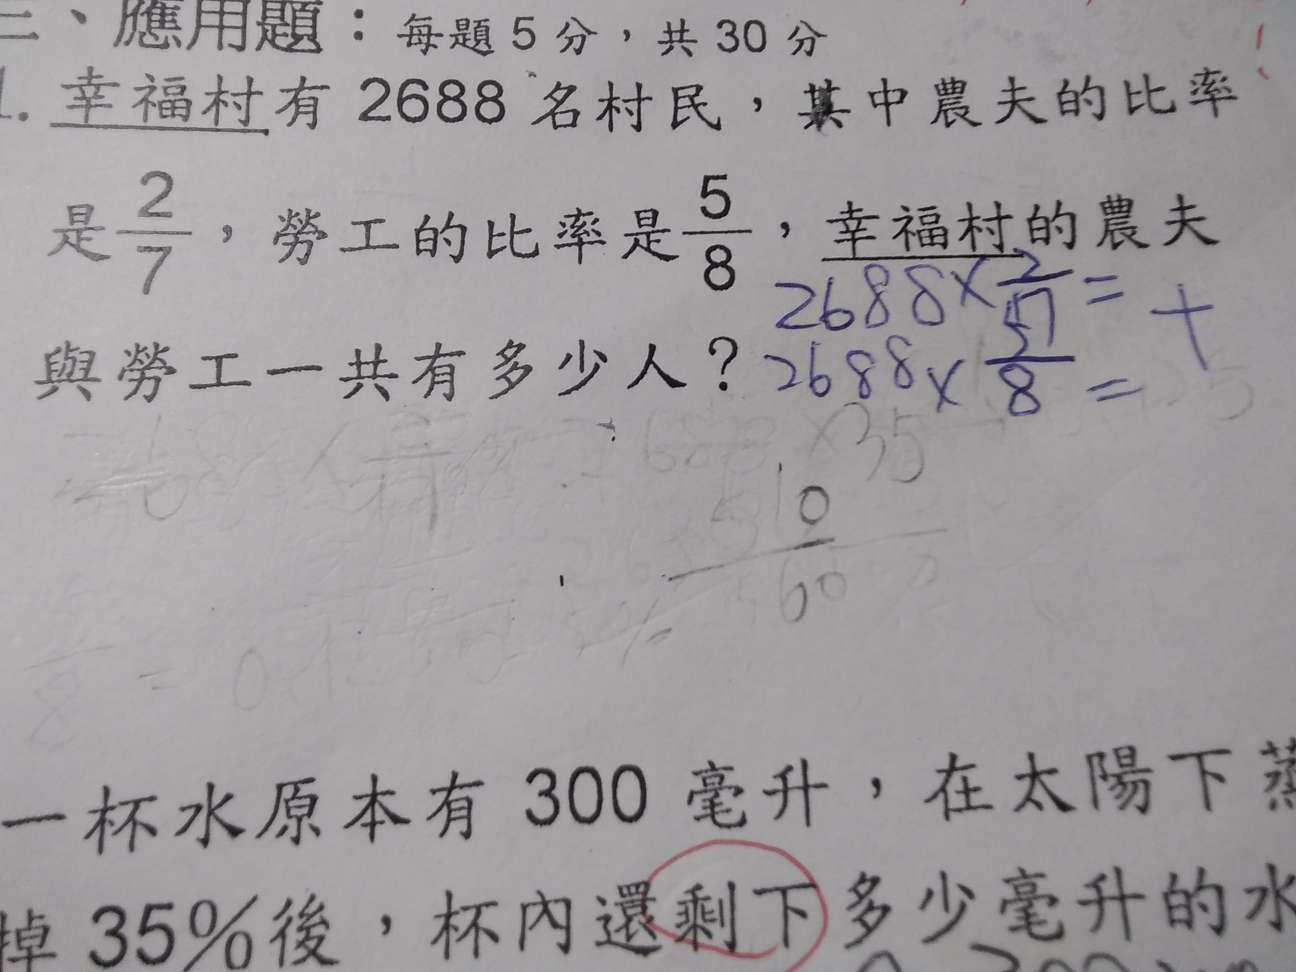 三、應用題：每題 5 分，共 30 分
1. 幸福村有 2688 名村民，其中農夫的比率
是 2/7，勞工的比率是 5/8，幸福村的農夫
2688×2/7=
與勞工一共有多少人？
2688×5/8=
+
×35
一杯水原本有 300 毫升，在太陽下蒸
掉 35%後，杯內還剩下多少毫升的水